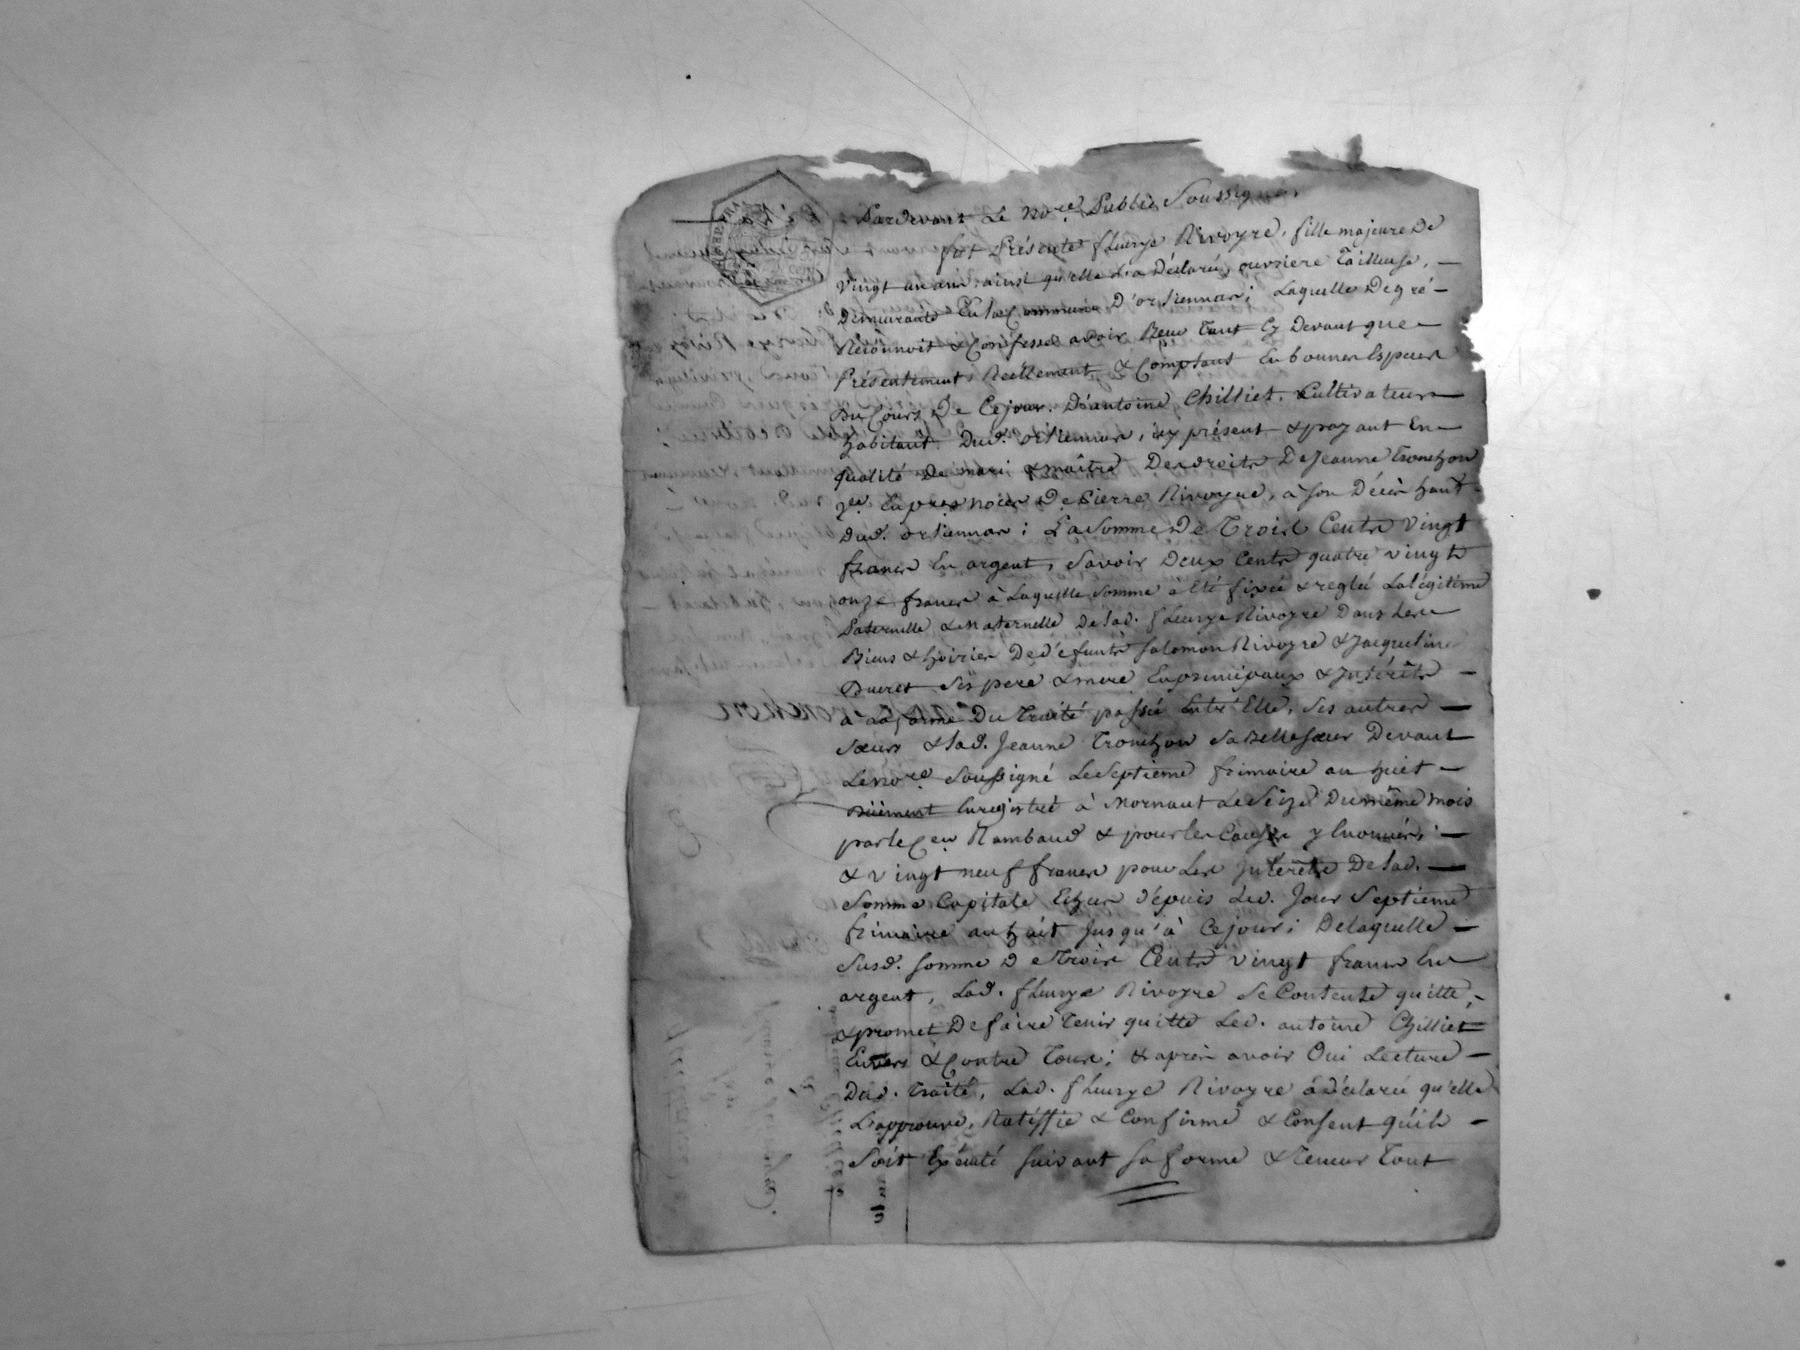 Pardevant Le no.re Public Soussigné,
fut Présente fleurye Rivoyre, fille majeure de
Vingt un ans ainsi qu'elle l'a Déclaré, ouvriere Tailleuse, —
Demeurante En la Commune D'orliennas; Laquelle De gré —
Reconnoit & Confesse avoir Reçu Tant Cy Devant que —
Présentement, Réellement & Comptant En bonnes Especes
Du Cours De Cejour. D'antoine Chilliet. Cultivateur —
habitant Dud. orliennas, icy présent & payant En —
qualité De mari & maître Des droits De Jeanne Tronchon
v.e En p.res noces De Pierre Rivoyre, à son Décès hant.
Dud. orliennas; La Somme De Trois Cents vingt
francs En argent, Savoir Deux Cents quatre vingt
onze francs à Laquelle Somme à Eté fixée & reglée La légitime
Paternelle & Maternelle De lad. fleurye Rivoyre Dans Les
Biens & hoiries De Défunts Salomon Rivoyre & Jacqueline
Ducret Ses pere & mere En principaux & Intérêts —
à La forme Du Traité passé Entr'Elle, Ses autres —
Sœurs & lad. Jeanne Tronchon Sa Belle sœur Devant
Le no.re Soussigné Le Septieme frimaire an huit —
Düement Enregistré à Mornant Le Seize Du même mois
par le C.en Rambaud & pour les Causes y Enoncées; —
& vingt neuf francs pour Les Intérêts De lad. —
Somme Capitale Echus dépuis Led. Jour Septieme
frimaire an huit Jusqu'à Cejour; De laquelle —
Susd. Somme De Trois Cents vingt francs En
argent, Lad. fleurye Rivoyre Se Contente quitte, —
& promet De faire Tenir quitte Led. antoine Chilliet
Envers & Contre Tous; & après avoir Oui Lecture —
Dud. Traité, Lad. fleurye Rivoyre à déclaré qu'elle
L'approuve, Ratiffie & Confirme & Consent qu'il —
Soit Exécuté Suivant Sa forme & Teneur Tout